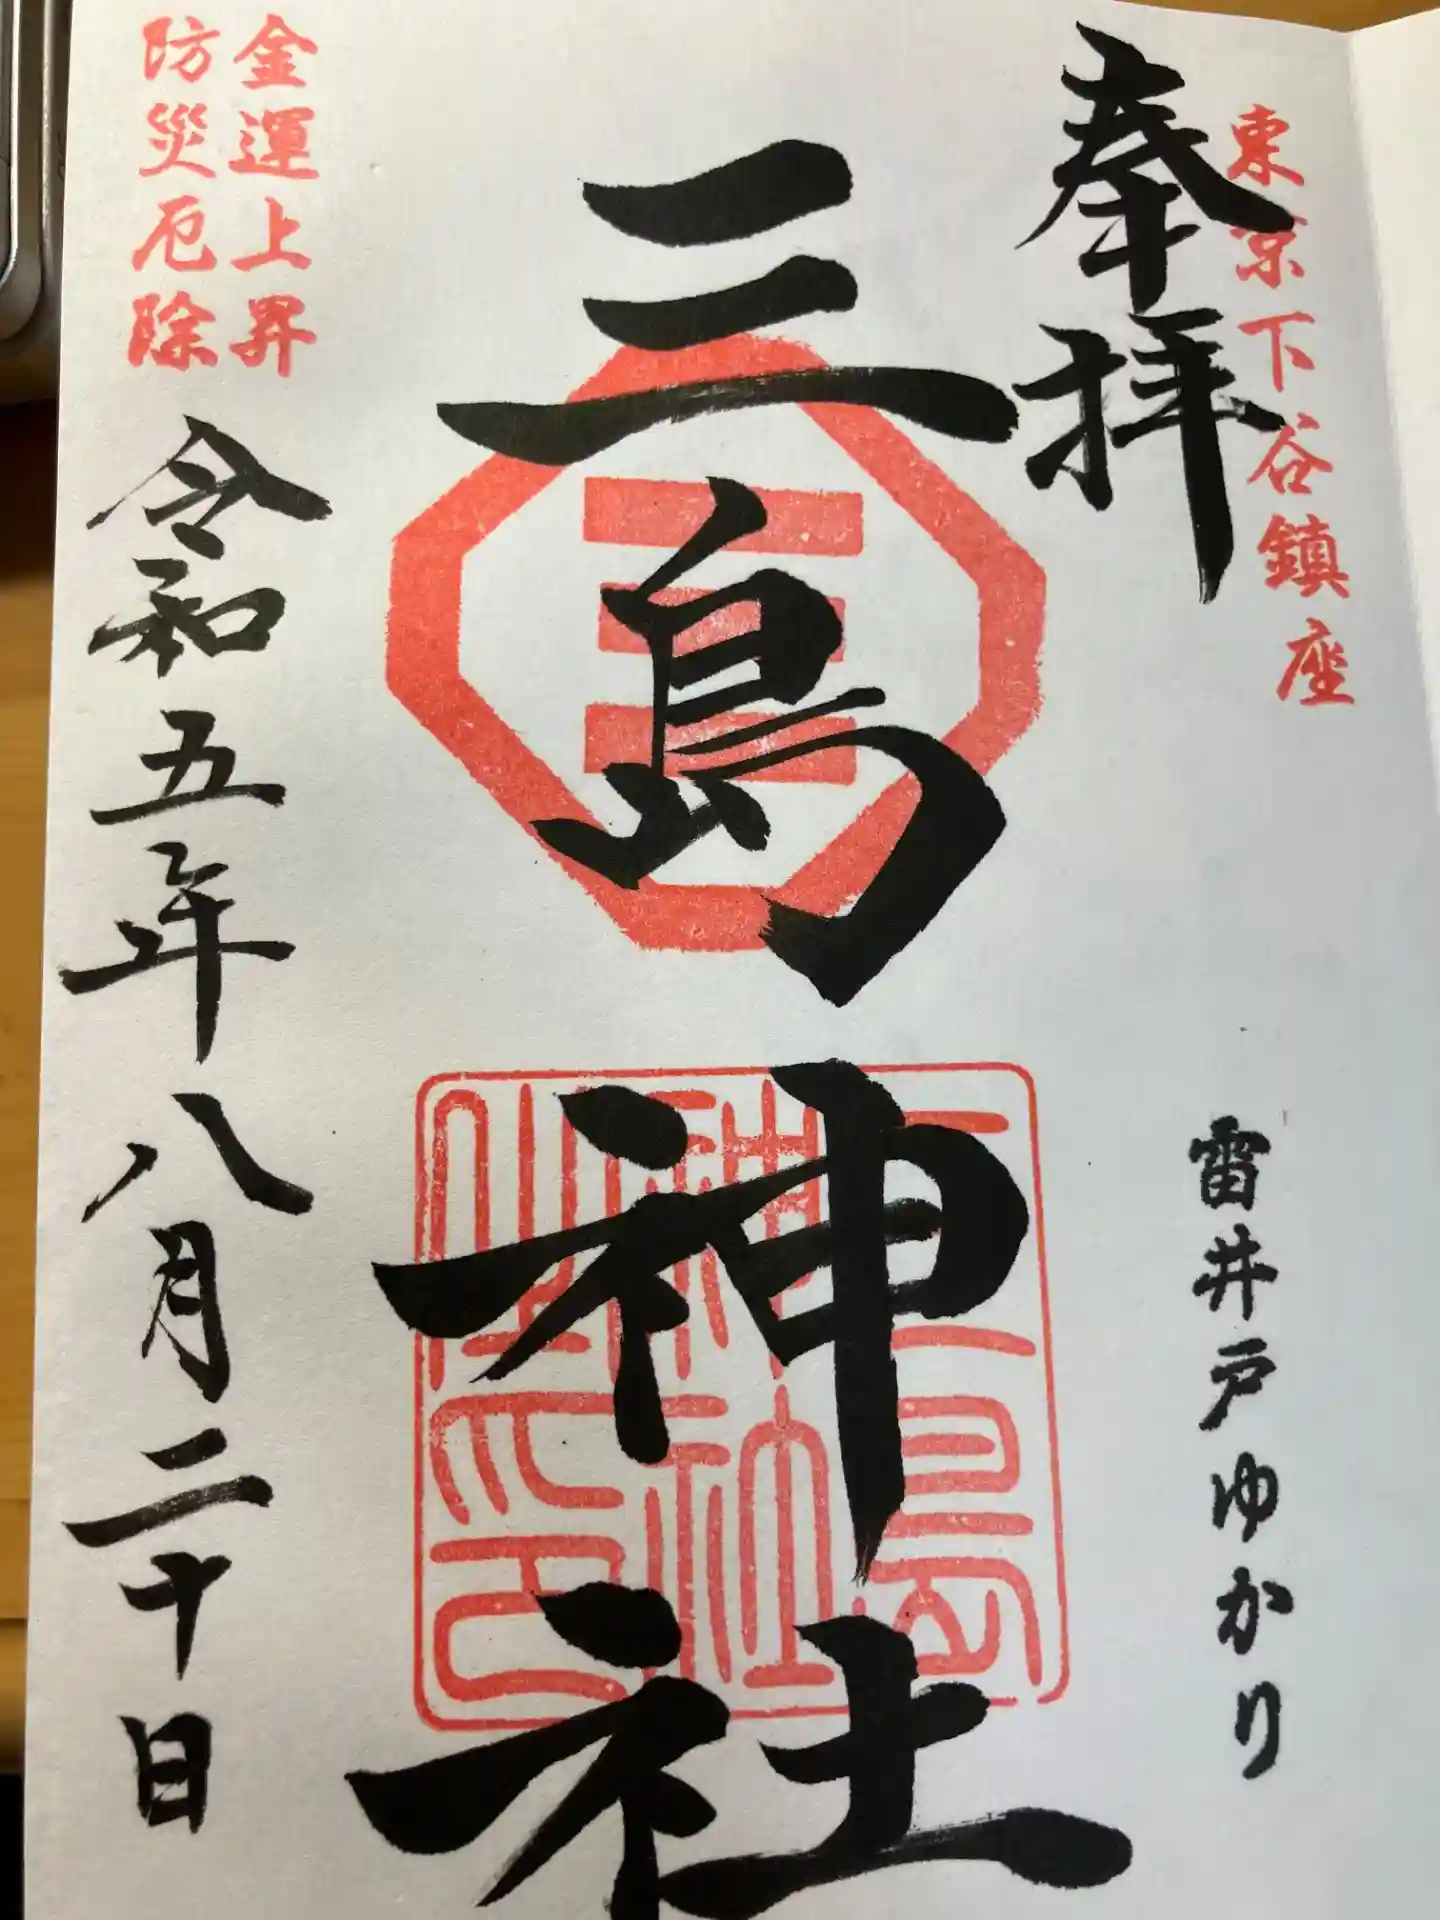 東京下谷鎮座
奉拝
雷井戸ゆかり
三島神社
三
三島
神社
金運上昇
防災厄除
令和五年八月二十日